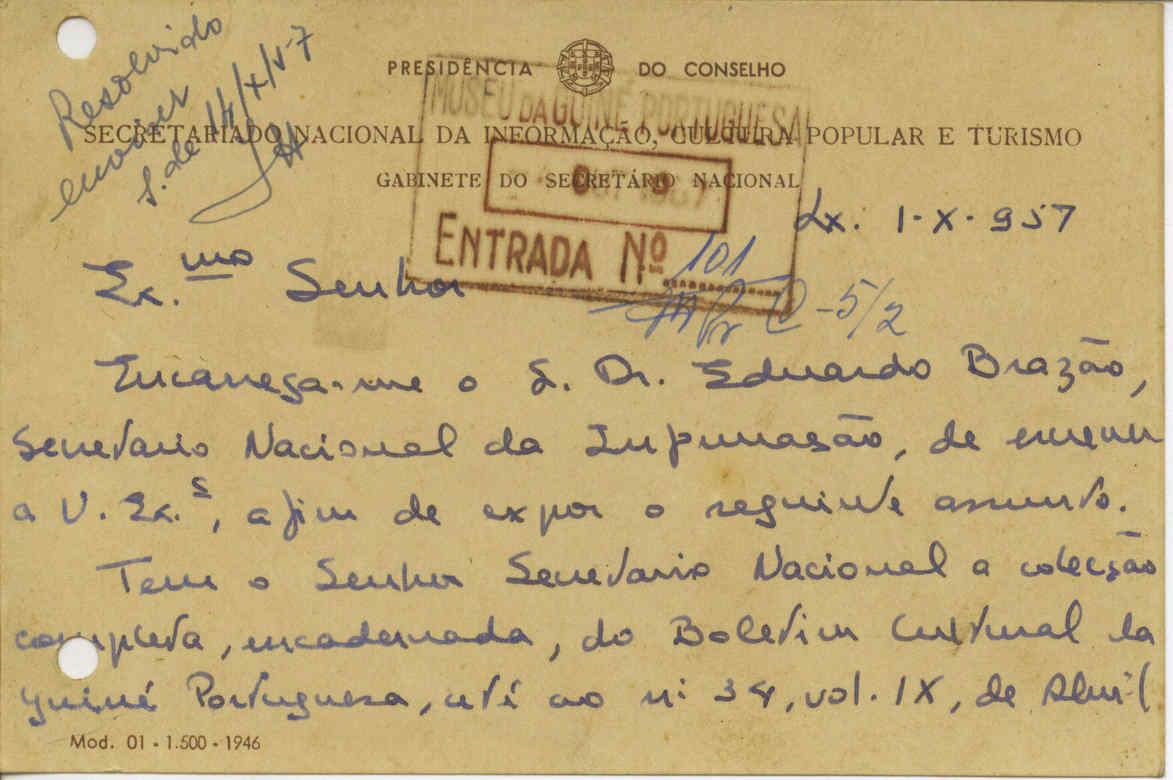 Resolvido
enviar
s. de 14/X/57
PRESIDÊNCIA DO CONSELHO
MUSEU DA GUINÉ PORTUGUESA
SECRETARIADO NACIONAL DA INFORMAÇÃO, CULTURA POPULAR E TURISMO
GABINETE DO SECRETÁRIO NACIONAL
Lx. 1-X-957
ENTRADA Nº 101
C-5/2
Ex.mo Senhor
Encarrega-me o S. Dr. Eduardo Brazão,
Secretario Nacional da Informação, de escrever
a V. Ex.ª, afim de expor o seguinte assunto.
Tem o Senhor Secretario Nacional a colecção
completa, encadernada, do Boletim Cultural da
Guiné Portuguesa, até ao nº 34, vol. IX, de Abril
Mod. 01 - 1.500 - 1946